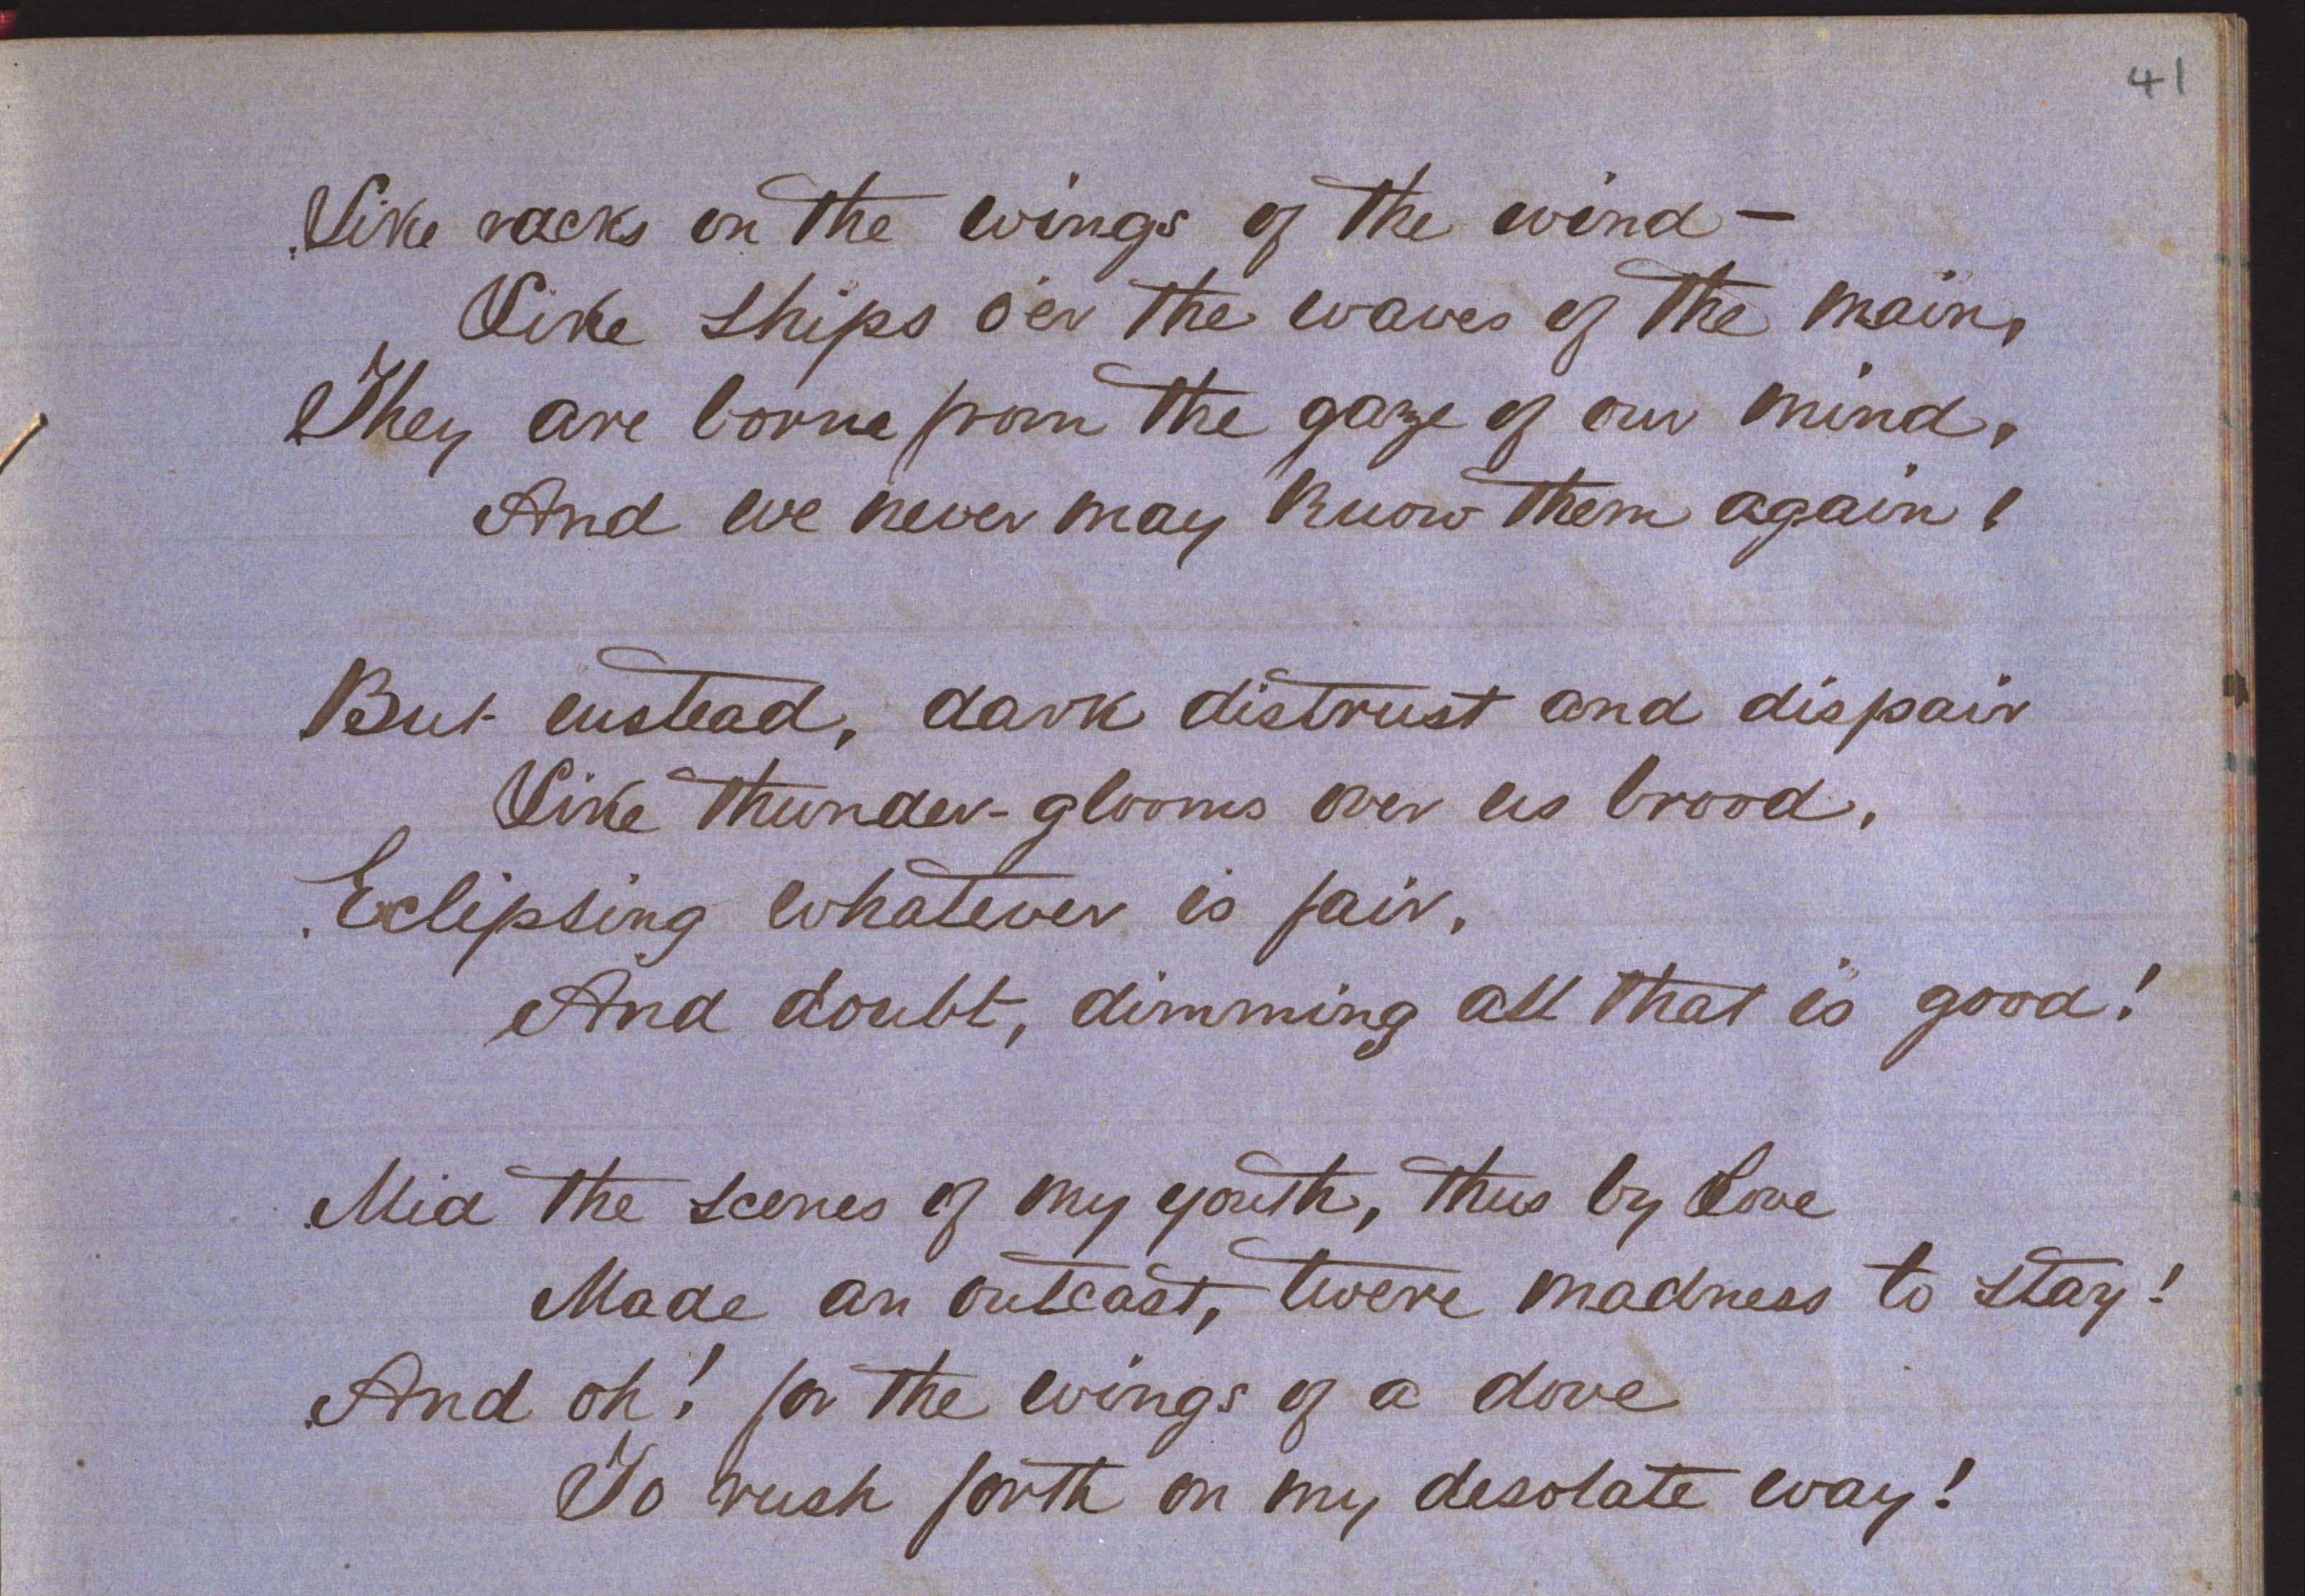 41
Like racks on the wings of the wind —
Like ships o'er the waves of the main,
They are borne from the gaze of our mind,
And we never may know them again!
But instead, dark distrust and dispair
Like thunder-glooms over us brood,
Eclipsing whatever is fair,
And doubt, dimming all that is good!
Mid the scenes of my youth, thus by Love
Made an outcast, twere madness to stay!
And oh! for the wings of a dove
To rush forth on my desolate way!